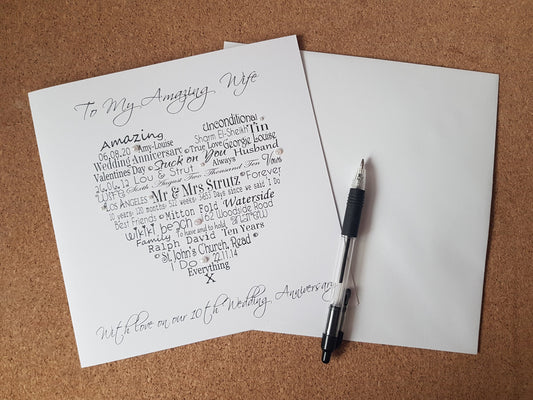 To My Amazing Wife
Amazing
Unconditional
06.08.20 Amy-Louise
Shorm El-Sheikh Tin
Wedding Anniversary True Love George Louise
Valentines Day Stuck on You Always Husband
26.04.12 Lou & Strut
Sixth August Two Thousand Ten Vows
Wife Mr & Mrs Strutz Forever
LOS ANGELES
10 years: 120 months: 512 weeks: 3653 Days since we said I Do
Best Friends Mitton Fold Waterside
Wikiki beach 62 Woodside Road
Family To have and to hold
Ralph David Ten Years
St. John's Church, Read
I Do 22.11.14
Everything
X
With love on our 10th Wedding Anniversary